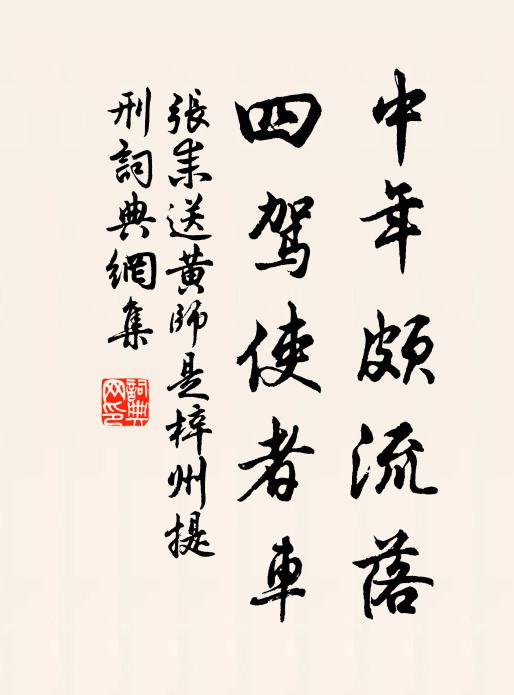 中年頗流落
四駕使者車
張耒送黄師是梓州提
刑詞典網集
詞典
网印